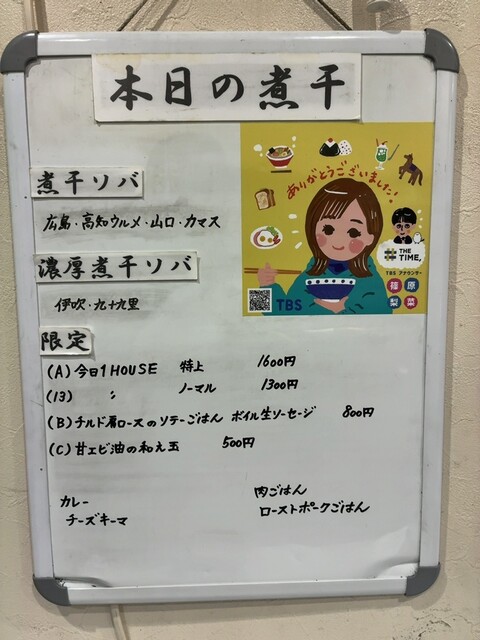 本日の煮干
煮干ソバ
広島・高知ウルメ・山口・カマス
濃厚煮干ソバ
伊吹・九十九里
限定
(A) 今日1HOUSE 特上 1600円
(13) 〃 ノーマル 1300円
(B) チルド肩ロースのソテーごはん ボイル生ソーセージ 800円
(C) 甘エビ油の和え玉 500円
カレー
チーズキーマ
肉ごはん
ローストポークごはん
ありがとうございました!
# THE TIME,
TBS アナウンサー
篠原
梨菜
TBS